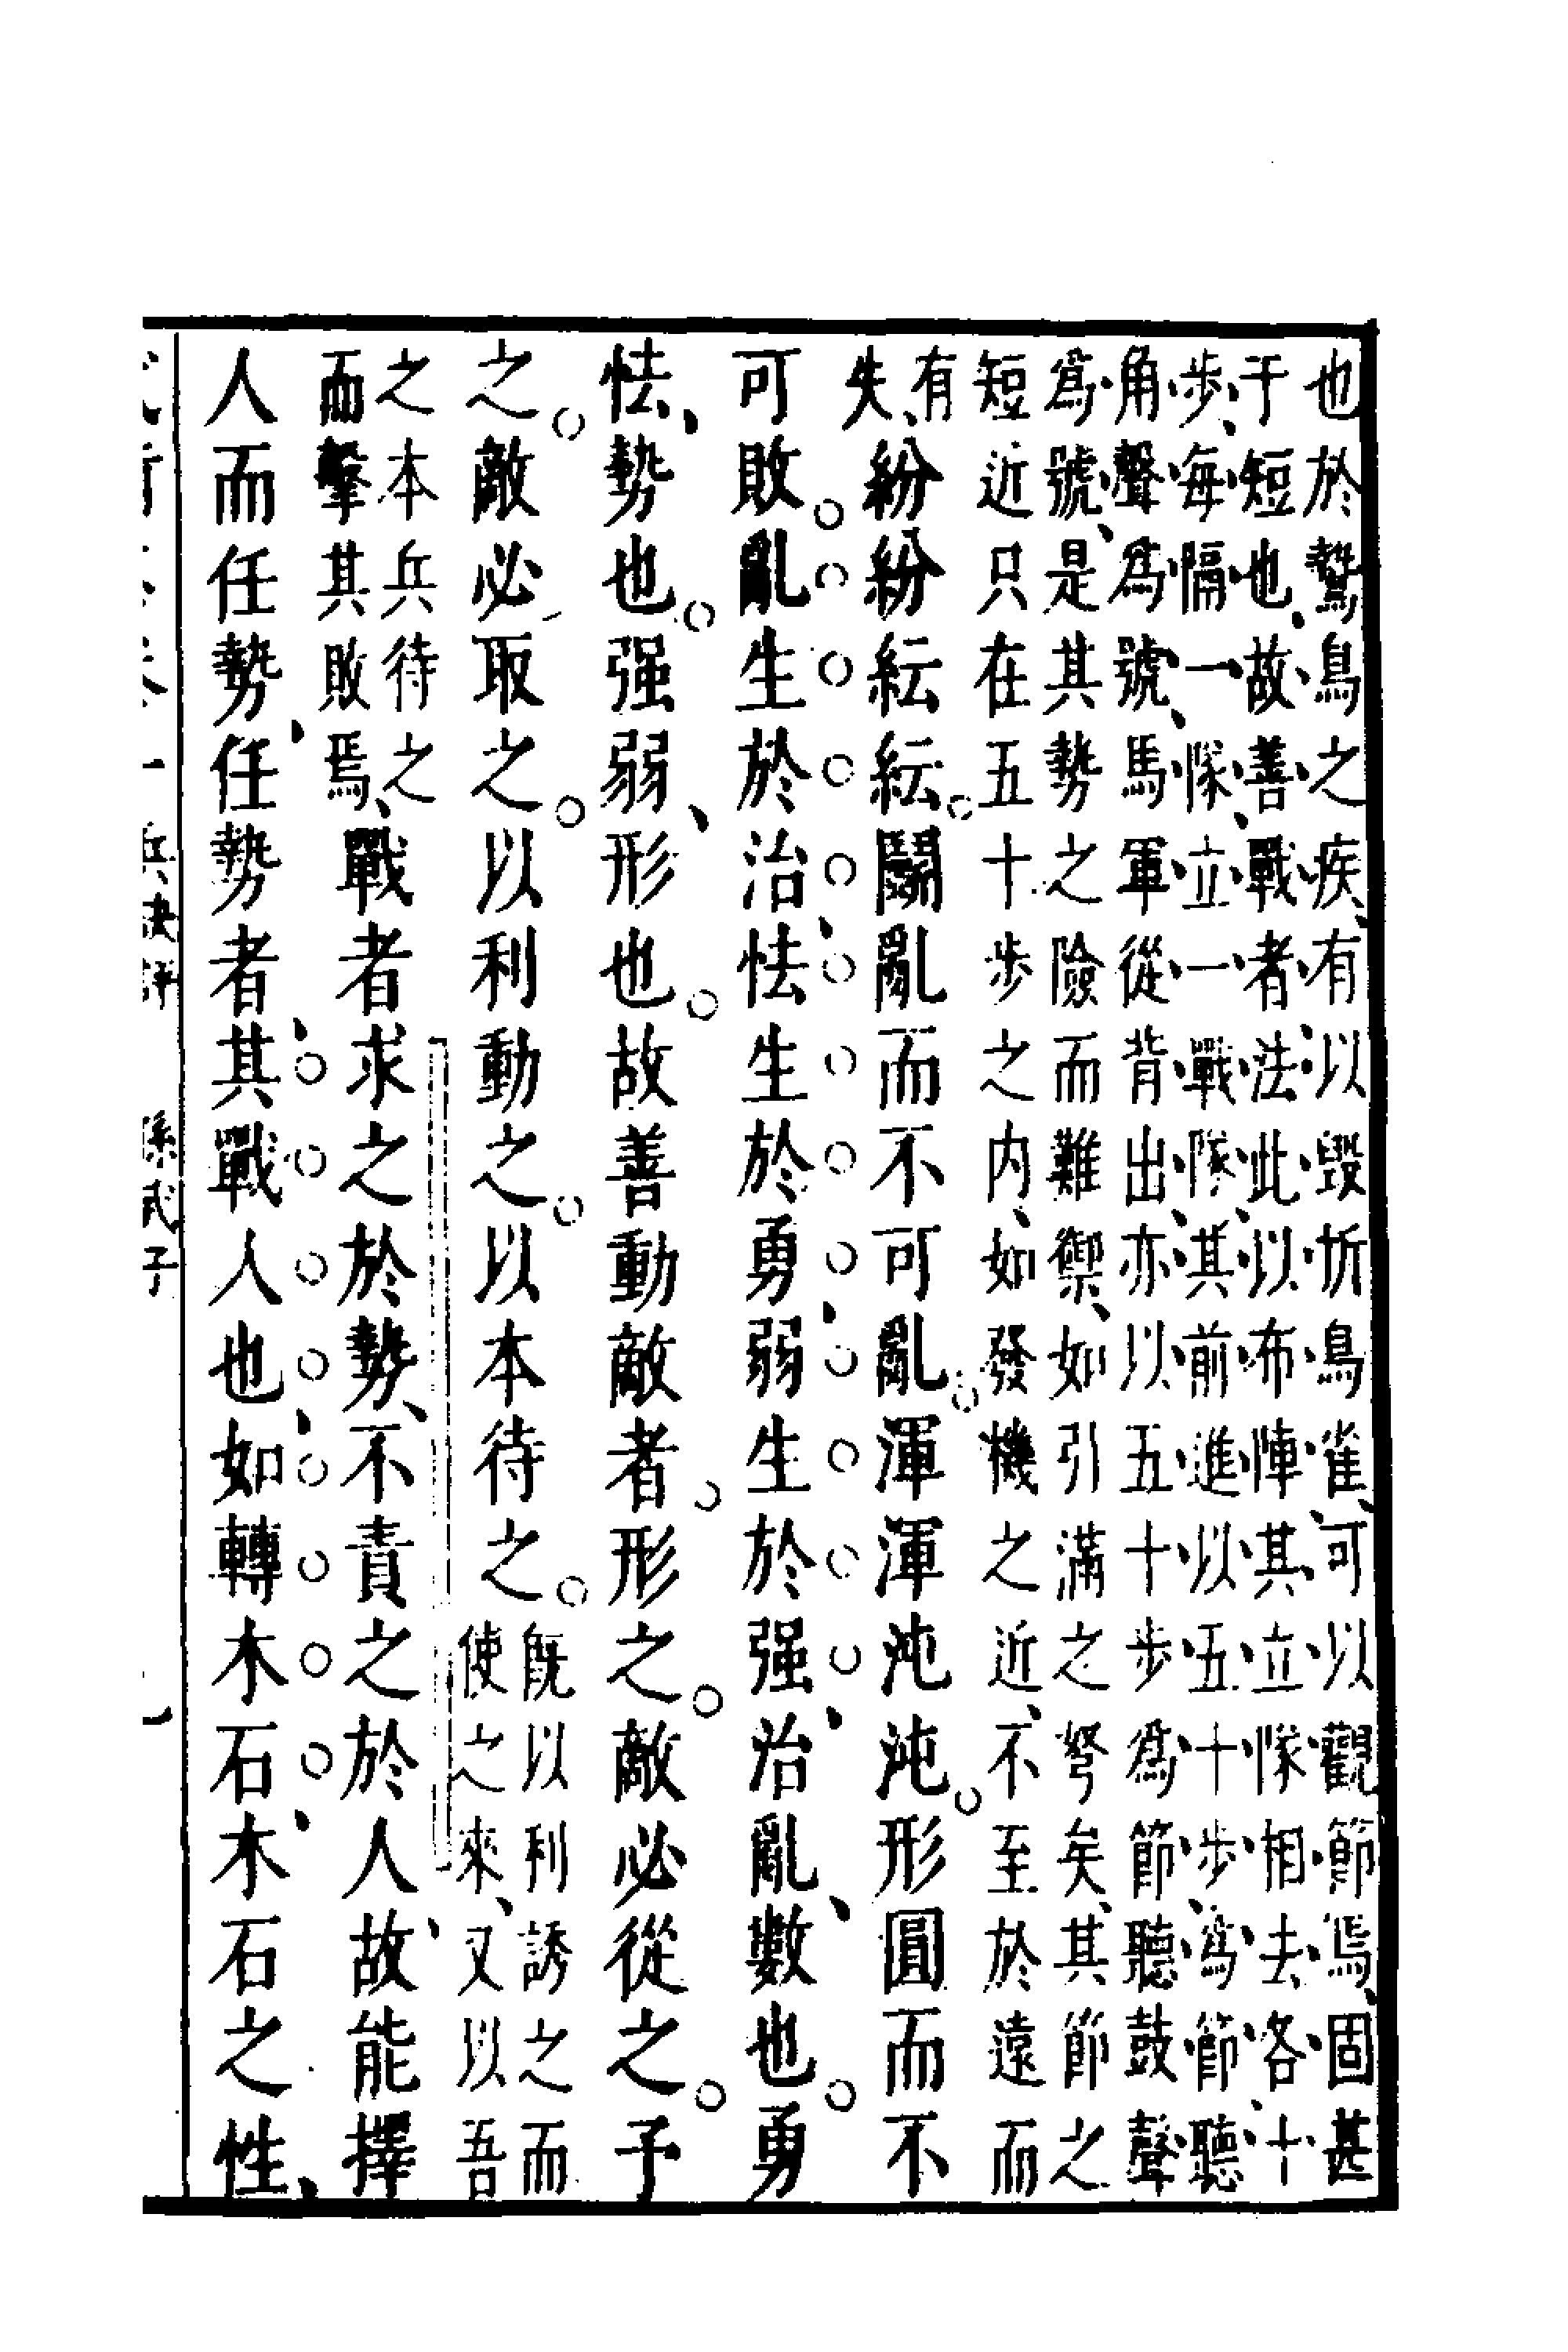 也於鷙鳥之疾有以毀折鳥雀可以觀節焉固甚
于短也故善戰者法此以布陣其立隊相去各十
步每隔一隊立一戰隊其前進以五十步爲節聽
角聲爲號馬軍從背出亦以五十步爲節聽鼓聲
爲號是其勢之險而難禦如引滿之弩矣其節之
短近只在五十步之内如發機之近不至於遠而
有
失紛紛紜紜鬬亂而不可亂渾渾沌沌形圓而不
可敗亂生於治怯生於勇弱生於强治亂數也勇
怯勢也强弱形也故善動敵者形之敵必從之予
之敵必取之以利動之以本待之既以利誘之而
使之來又以吾
之本兵待之
而擊其敗焉戰者求之於勢不責之於人故能擇
人而任勢任勢者其戰人也如轉木石木石之性
兵訣評 孫武子